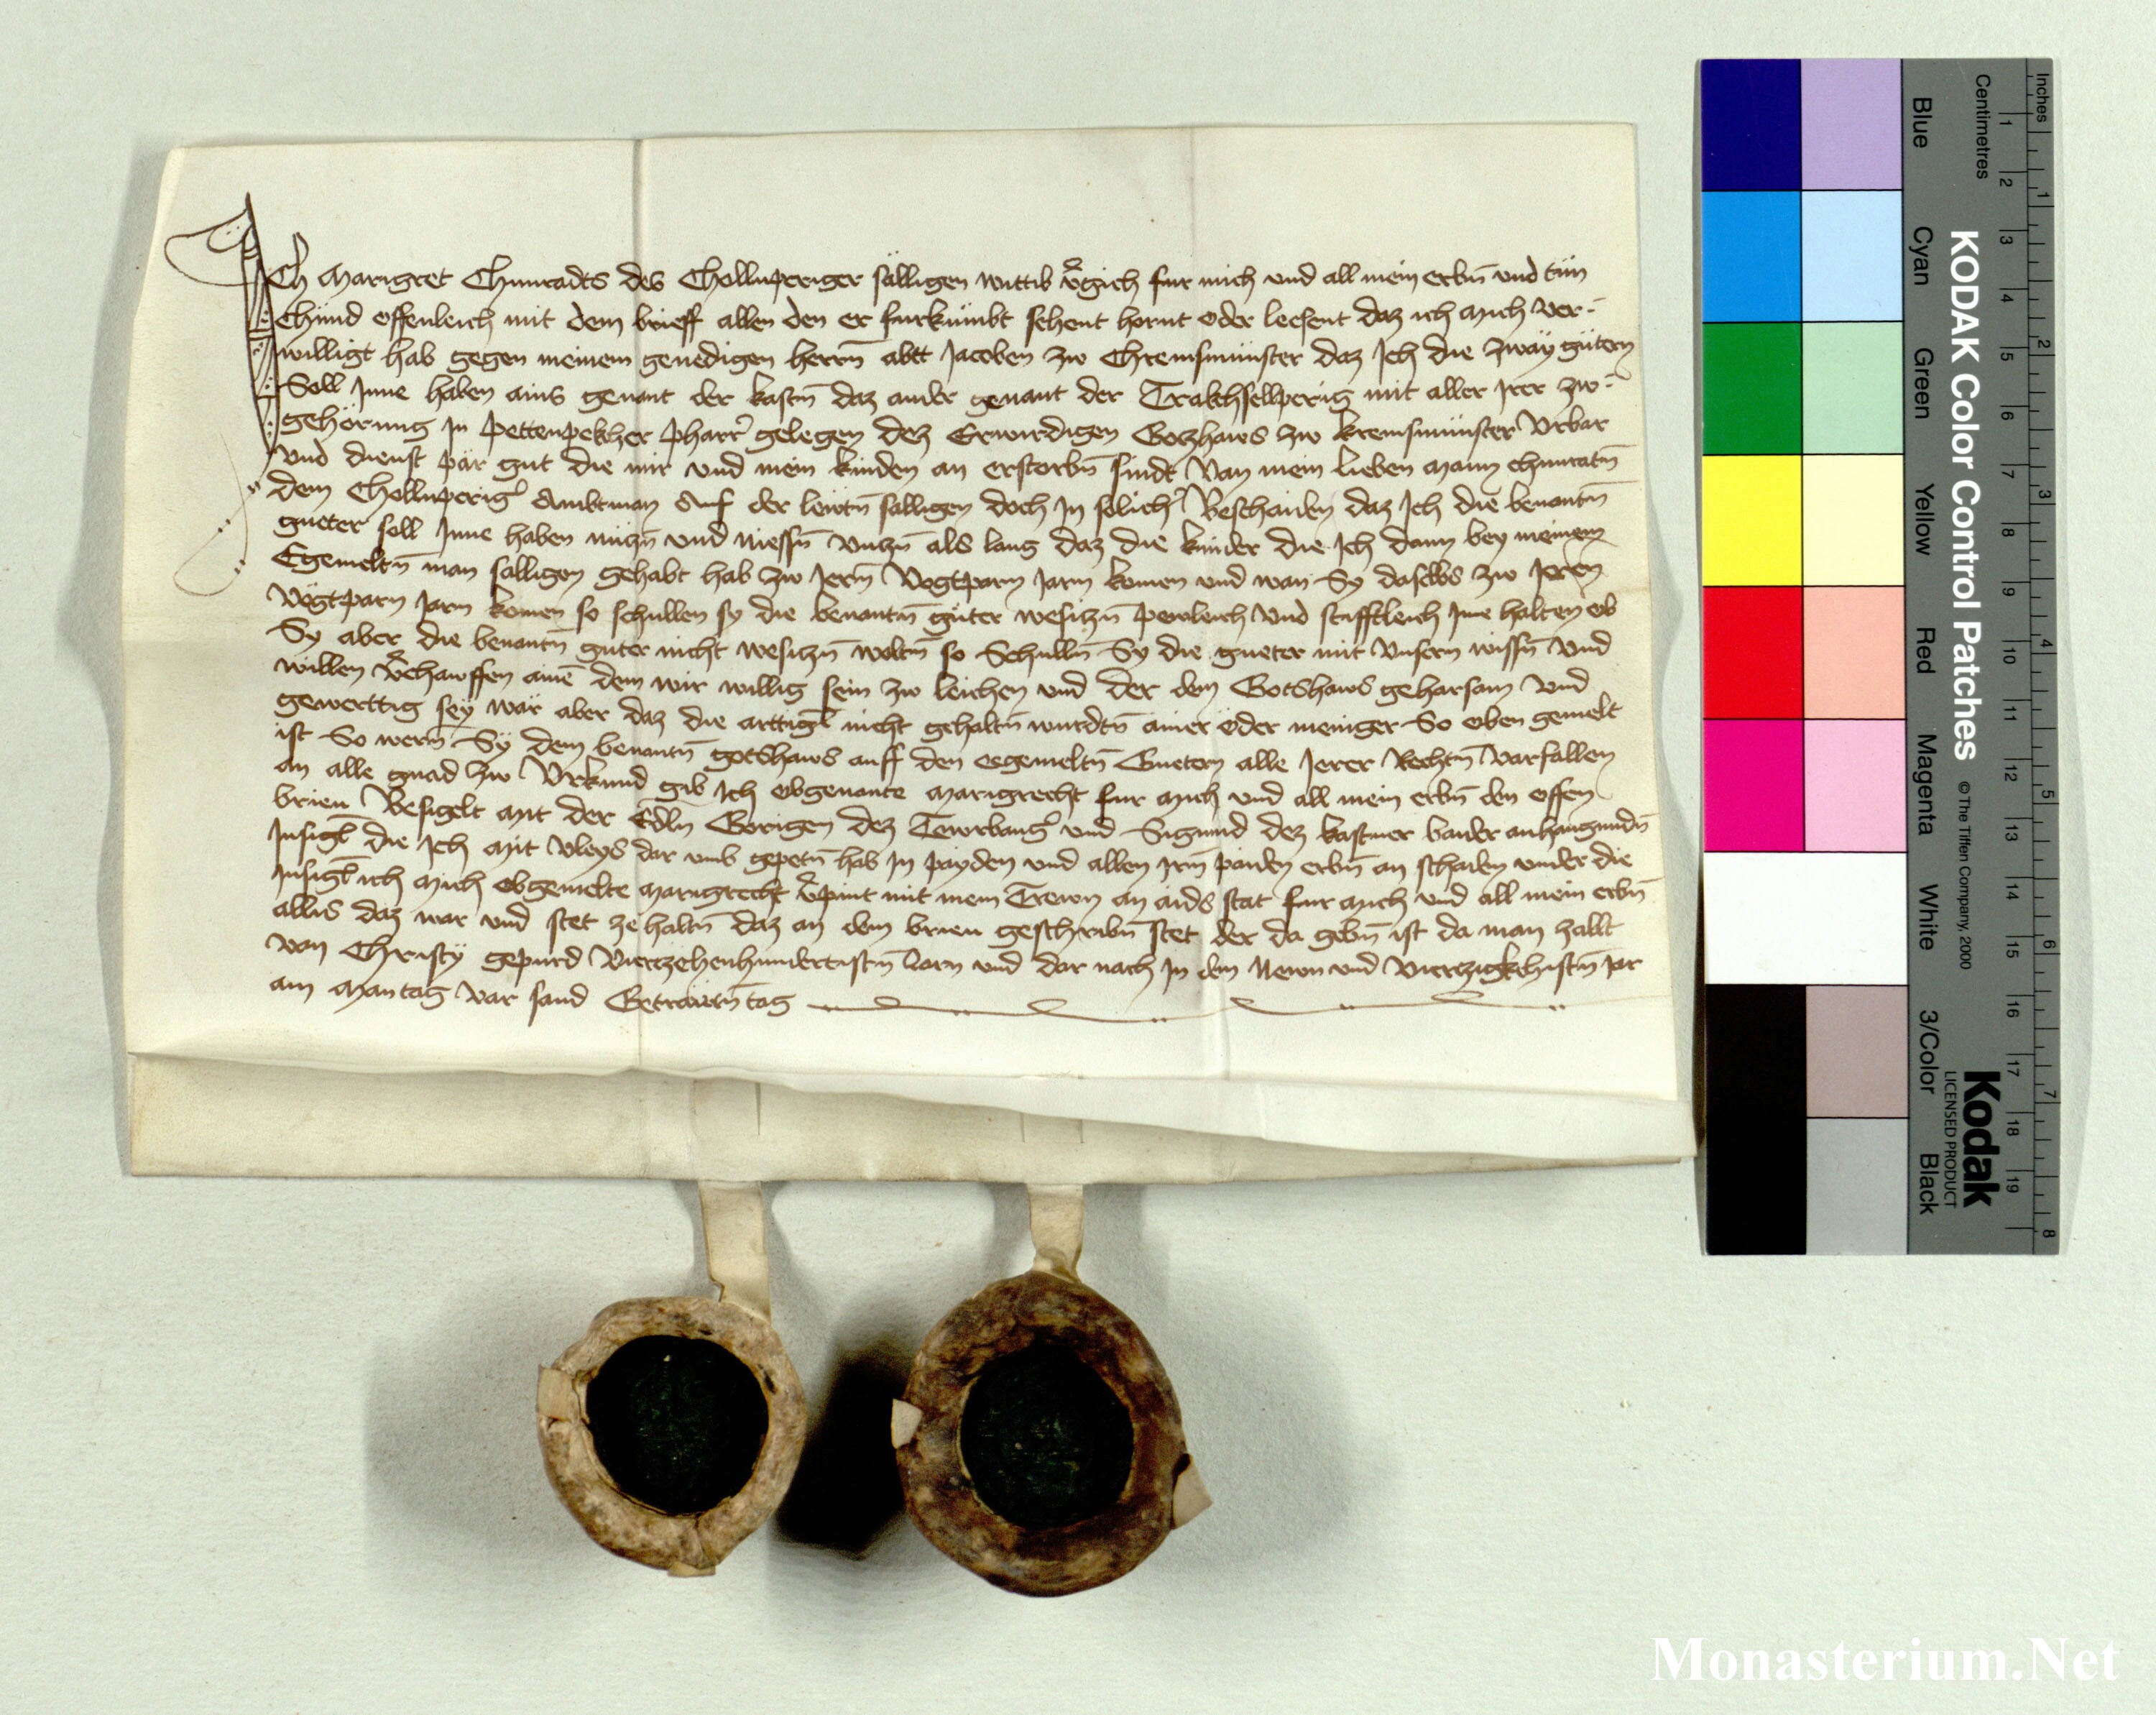 Ich Margret Chunradts des Chollnperiger sälligen wittib vergich fur mich und all mein erbn̄ und tün
chünd offenleich mit dem brieff allen den er furkümbt sehent hornt oder leesent daz ich mich ver-
willigt hab gegen meinem genedigen herrn̄ abtt Jacoben zw Chremsmünster daz Jch die zwaÿ gütern
Soll Jnne haben ains genant der kastn̄ daz ander genant der Trakchsellperig mit aller jrer zw-
gehörung Jn pettenpekher pharr̄ gelegen dez Erwirdigen Gotzhaws zw kremsmünster Urbar
und dienst pär gut die mir und mein kinden an erstorbn̄ sindt Van mein lieben mann chunratn̄
dem Chollnperig̛ Ambtman Auf der leïtn̄ sälligen doch Jn solich̛ Beschaiden daz Jch die benantn̄
gueter soll Jnne haben nüczn̄ und niessn̄ Unczn̄ als lang daz die kinder die Jch dann bey meinem
Egemeltn̄ man sälligen gehabt hab zw Jern̄ Vogtparn Jarn komen und wan Sy daselbs zw Jeren
Vogtparn Jarn komen so schullen sy die benantn̄ güter wesiczn̄ pewleich Und stifftleich Jnne halten ob
Sy aber die benantn̄ guter nicht wesiczn̄ woltn̄ so Schulln̄ Sy die gueter mit Unsern wissn̄ Und
willen v̛chawffen aine dem wir willig sein zw leichen und der dem Gotshaws geharsam Und
gewerttig seÿ wär aber daz die arttigl̄ nicht gehaltn̄ wurdtn̄ ainer öder meniger So oben gemelt
ist So wern̄ Sÿ dem benantn̄ gotshaws auff den egemeltn̄ Guetern alle Jerer Rechtn̄ Varfallen
an alle gnad zw Urkund gib Jch obgenante Margrecht fur mich und all mein erbn̄ den offen
brieu Besigelt mit der Edln Görigen dez und Sigmund dez kastner baider anhangundn̄
Jnsigl̄ die Jch mit Vleys dar umb gepetn̄ hab Jn payden und allen Jrn̄ paiden erbn̄ an schaden under die
Jnsigl̄ ich mich obgemelte Margrecht v̛pint mit mein Trewn an aids stat fur mich und all mein erbn̄
allis daz war und stet ze haltn̄ daz an dem brieu geschribn̄ stet der da gebn̄ ist da man zallt
Van Christÿ gepurd Vierczehenhundertistn̄ Jarn und dar nach Jn dem Newn und Vierczigkchistn̄ Jar
am Mantag Var sand tag
Inches
Centimetres
KODAK Color Control Patches
© The Tiffen Company, 2000
Kodak
LICENSED PRODUCT
Blue Cyan Green Yellow Red Magenta White 3/Color Black
1 2 3 4 5 6 7 8 9 10 11 12 13 14 15 16 17 18 19
1 2 3 4 5 6 7 8
Monasterium.Net